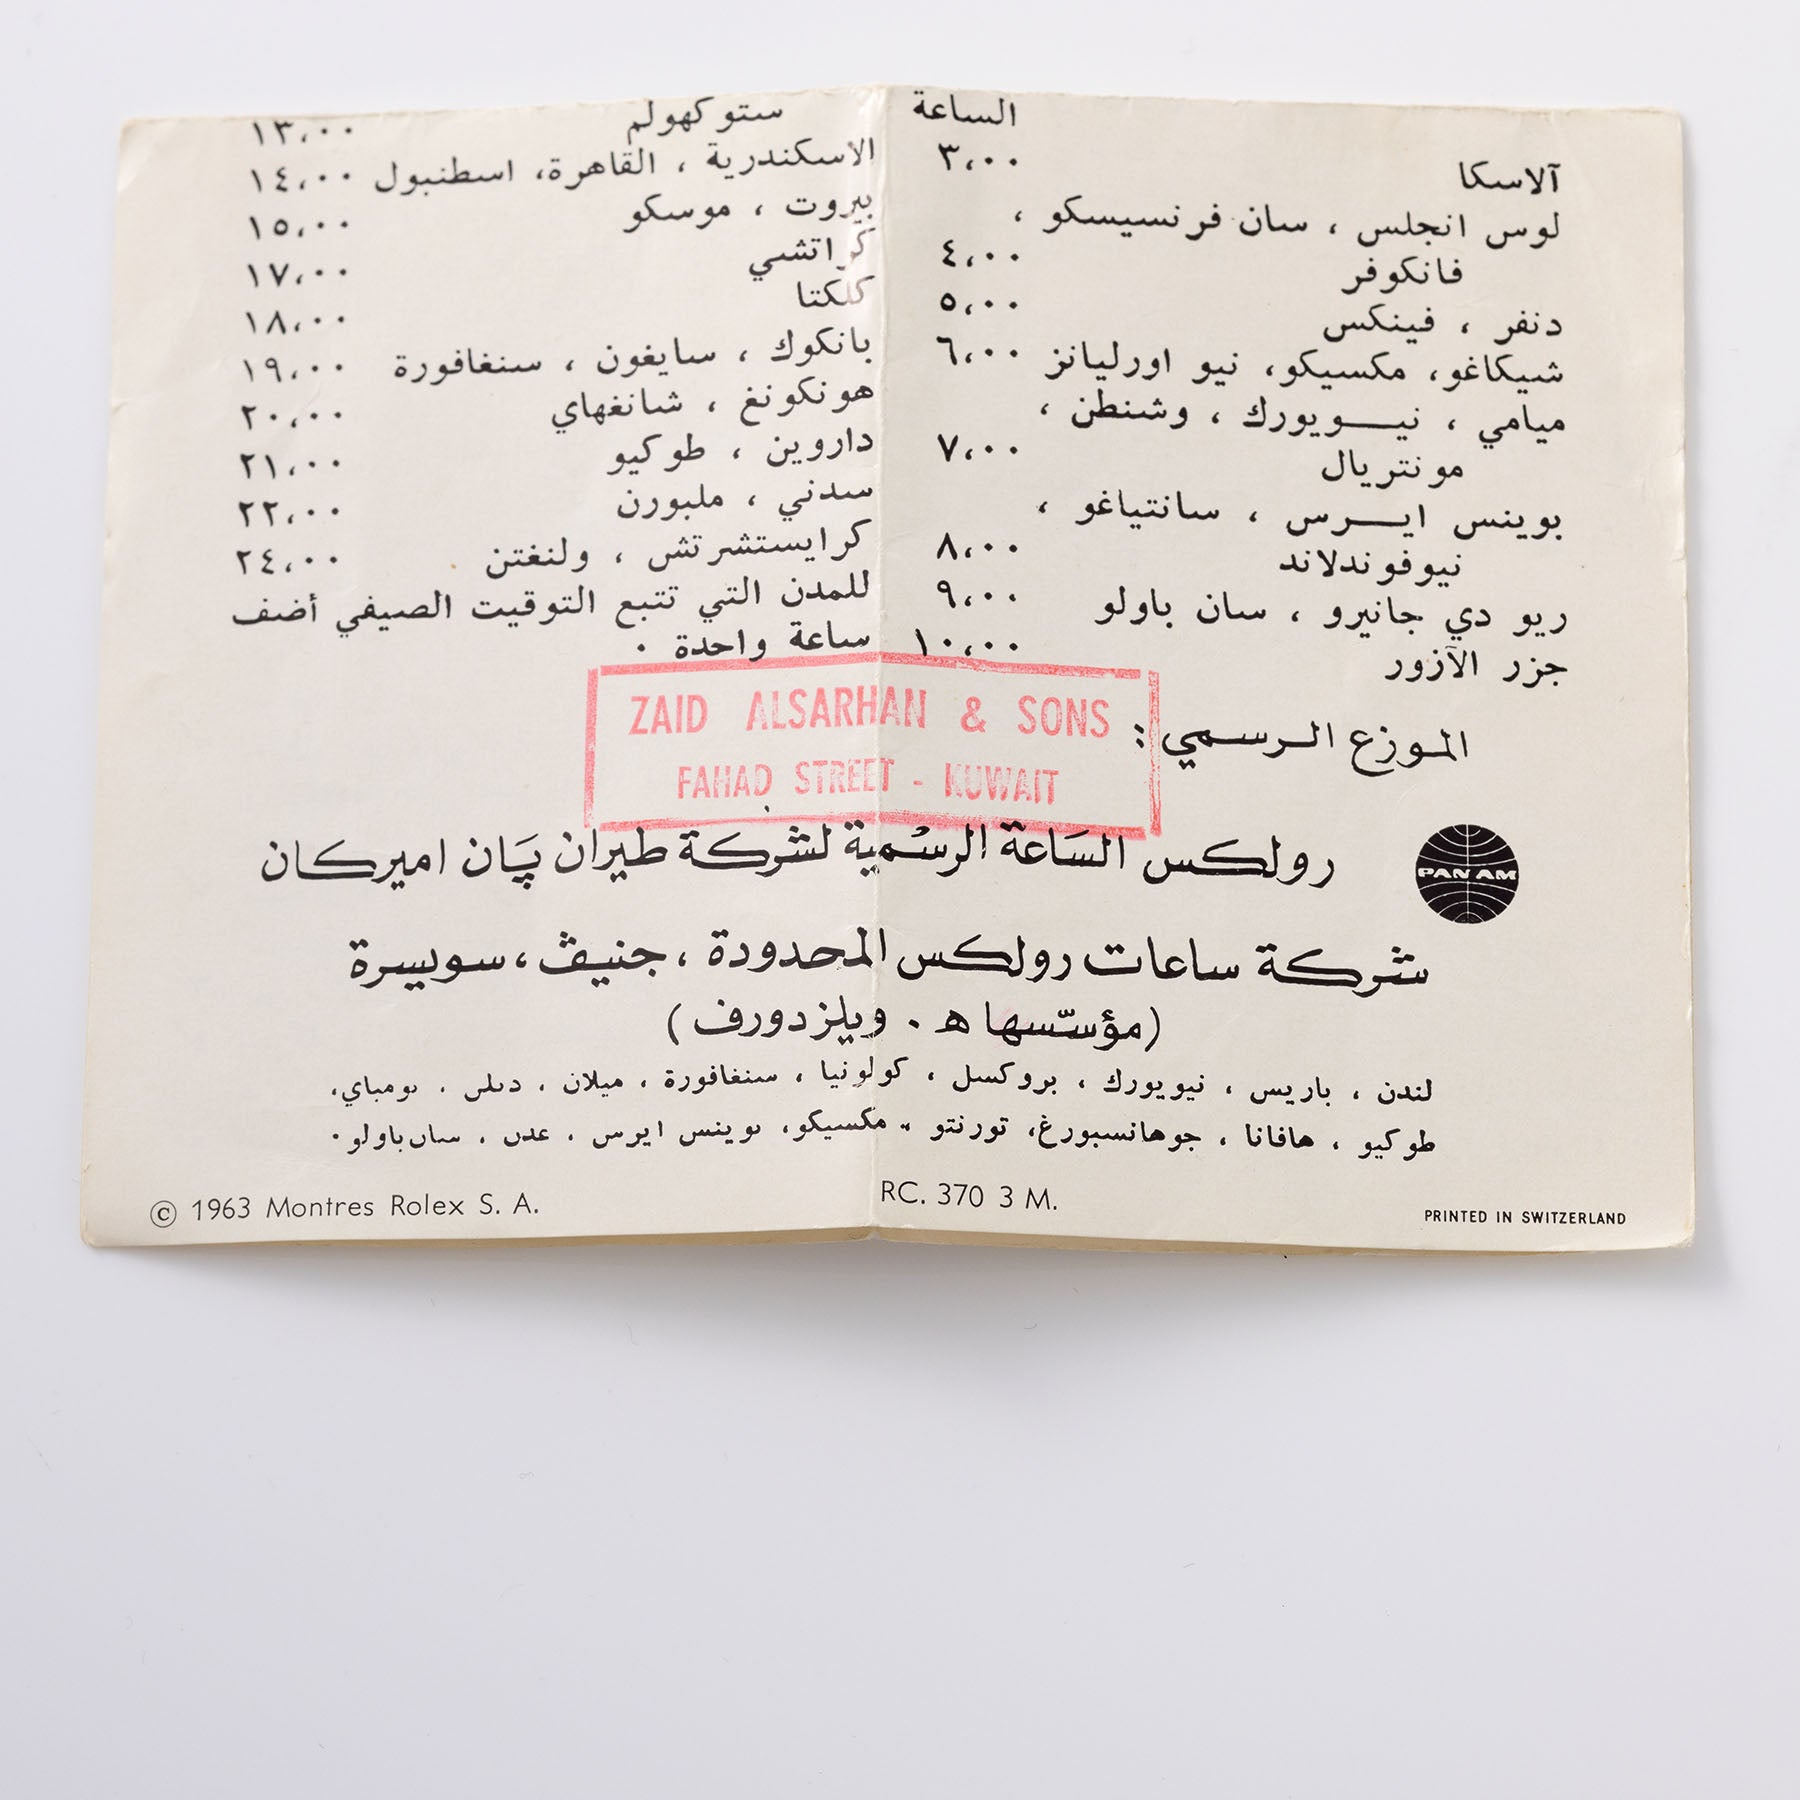 الساعة
آلاسكا ٣،٠٠
لوس انجلس ، سان فرنسيسكو ،
فانكوفر ٤،٠٠
دنفر ، فينكس ٥،٠٠
شيكاغو، مكسيكو، نيو اورليانز ٦،٠٠
ميامي ، نيـــويورك ، وشنطن ،
مونتريال ٧،٠٠
بوينس ايـــرس ، سانتياغو ،
نيوفوندلاند ٨،٠٠
ريو دي جانيرو ، سان باولو ٩،٠٠
جزر الآزور ١٠،٠٠
ستوكهولم ١٣،٠٠
الاسكندرية ، القاهرة، اسطنبول ١٤،٠٠
بيروت ، موسكو ١٥،٠٠
كراتشي ١٧،٠٠
كلكتا ١٨،٠٠
بانكوك ، سايغون ، سنغافورة ١٩،٠٠
هونكونغ ، شانغهاي ٢٠،٠٠
داروين ، طوكيو ٢١،٠٠
سدني ، ملبورن ٢٢،٠٠
كرايستشرتش ، ولنغتن ٢٤،٠٠
للمدن التي تتبع التوقيت الصيفي أضف
ساعة واحدة .
الموزع الرسمي :
ZAID ALSARHAN & SONS
FAHAD STREET - KUWAIT
PAN AM
رولكس السَاعة الرسْمية لشركة طيران پَان اميركان
شركة ساعات رولكس المحدودة ، جنيڤ ، سويسرة
(مؤسّسها ه . ويلزدورف)
لندن ، باريس ، نيويورك ، بروكسل ، كولونيا ، سنغافورة ، ميلان ، دبلن ، بومباي،
طوكيو ، هافانا ، جوهانسبورغ، تورنتو ، مكسيكو، بوينس ايرس ، عدن ، سان باولو.
© 1963 Montres Rolex S. A.
RC. 370 3 M.
PRINTED IN SWITZERLAND